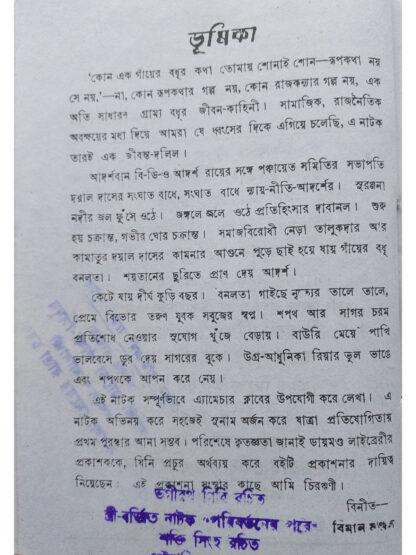 ভূমিকা
'কোন এক গাঁয়ের বধূর কথা তোমায় শোনাই শোন—রূপকথা নয়
সে নয়,'—না, কোন রূপকথার গল্প নয়, কোন রাজকন্যার গল্প নয়, এক
অতি সাধারণ গ্রাম্য বধূর জীবন-কাহিনী। সামাজিক, রাজনৈতিক
অবক্ষয়ের মধ্য দিয়ে আমরা যে ধ্বংসের দিকে এগিয়ে চলেছি, এ নাটক
তারই এক জীবন্ত-দলিল।
আদর্শবান বি-ডি-ও আদর্শ রায়ের সঙ্গে পঞ্চায়েত সমিতির সভাপতি
দয়াল দাসের সংঘাত বাধে, সংঘাত বাধে ন্যায়-নীতি-আদর্শের।
নদীর জল ফুঁসে ওঠে। জঙ্গলে জ্বলে ওঠে প্রতিহিংসার দাবানল। শুরু
হয় চক্রান্ত, গভীর ঘোর চক্রান্ত। সমাজবিরোধী নেড়া তালুকদার আর
কামাতুর দয়াল দাসের কামনার আগুনে পুড়ে ছাই হয়ে যায় গাঁয়ের বধূ
বনলতা। শয়তানের ছুরিতে প্রাণ দেয় আদর্শ।
কেটে যায় দীর্ঘ কুড়ি বছর। বনলতা গাইছে নৃত্যের তালে তালে,
প্রেমে বিভোর তরুণ যুবক সবুজের স্বপ্ন। শপথ আর সাগর চরম
প্রতিশোধ নেওয়ার সুযোগ খুঁজে বেড়ায়। বাউরি মেয়ে পাখি
ভালবেসে ডুব দেয় সাগরের বুকে। উগ্র-আধুনিকা রিয়ার ভুল ভাঙে
এবং শপথকে আপন করে নেয়।
এই নাটক সম্পূর্ণভাবে এ্যামেচার ক্লাবের উপযোগী করে লেখা। এ
নাটক অভিনয় করে সহজেই সুনাম অর্জন করে যাত্রা প্রতিযোগিতায়
প্রথম পুরস্কার আনা সম্ভব। পরিশেষে কৃতজ্ঞতা জানাই ডায়মণ্ড লাইব্রেরীর
প্রকাশককে, যিনি প্রচুর অর্থব্যয় করে বইটি প্রকাশনার দায়িত্ব
নিয়েছেন। এই প্রকাশনা সংস্থার কাছে আমি চিরঋণী।
বিনীত—
রচিত
শ্রী-বর্জিত নাটক পরিবর্তনের পরে
শক্তি সিংহ রচিত